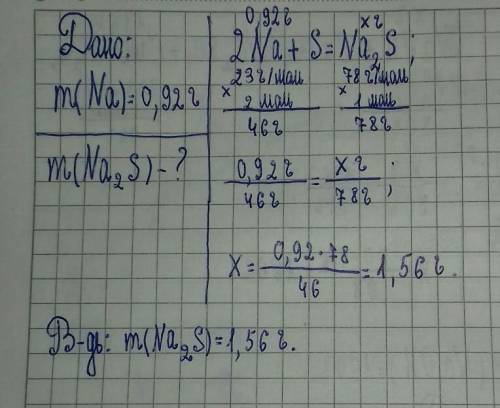 Дано:
m(Na)=0,92г
m(Na₂S)-?
0,92г xг
2Na+S=Na₂S;
23г/моль 78г/моль
x 2 моль x 1 моль
46г 78г
0,92г/46г = xг/78г;
X = 0,92·78/46 = 1,56г.
В-дь: m(Na₂S)=1,56г.